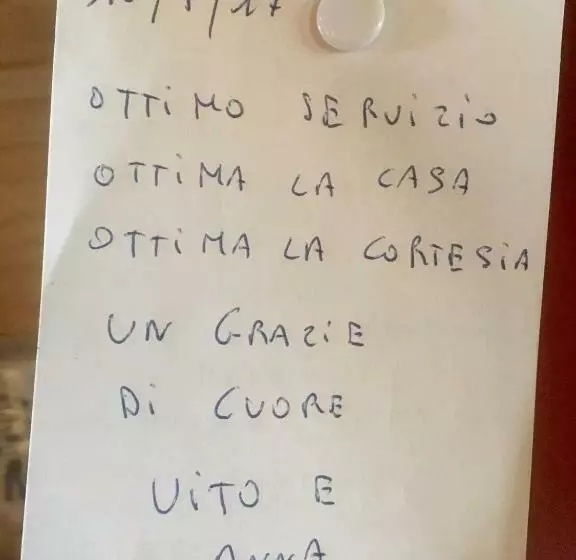 OTTIMO SERVIZIO
OTTIMA LA CASA
OTTIMA LA CORTESIA
UN GRAZIE
DI CUORE
VITO E
ANNA